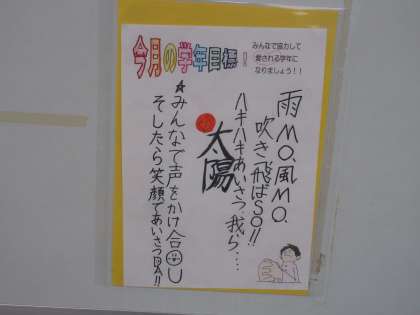 今月の学年目標！
みんなで協力して
愛される学年に
なりましょう！！
雨MO、風MO、
吹き飛ばSO!!
ハキハキあいさつ、我ら…
太陽
☆みんなで声をかけ合OU
そしたら笑顔であいさつDA!!